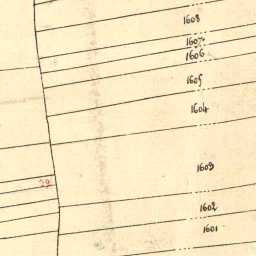 1608
1607
1606
1605
1604
1603
29
1602
1601